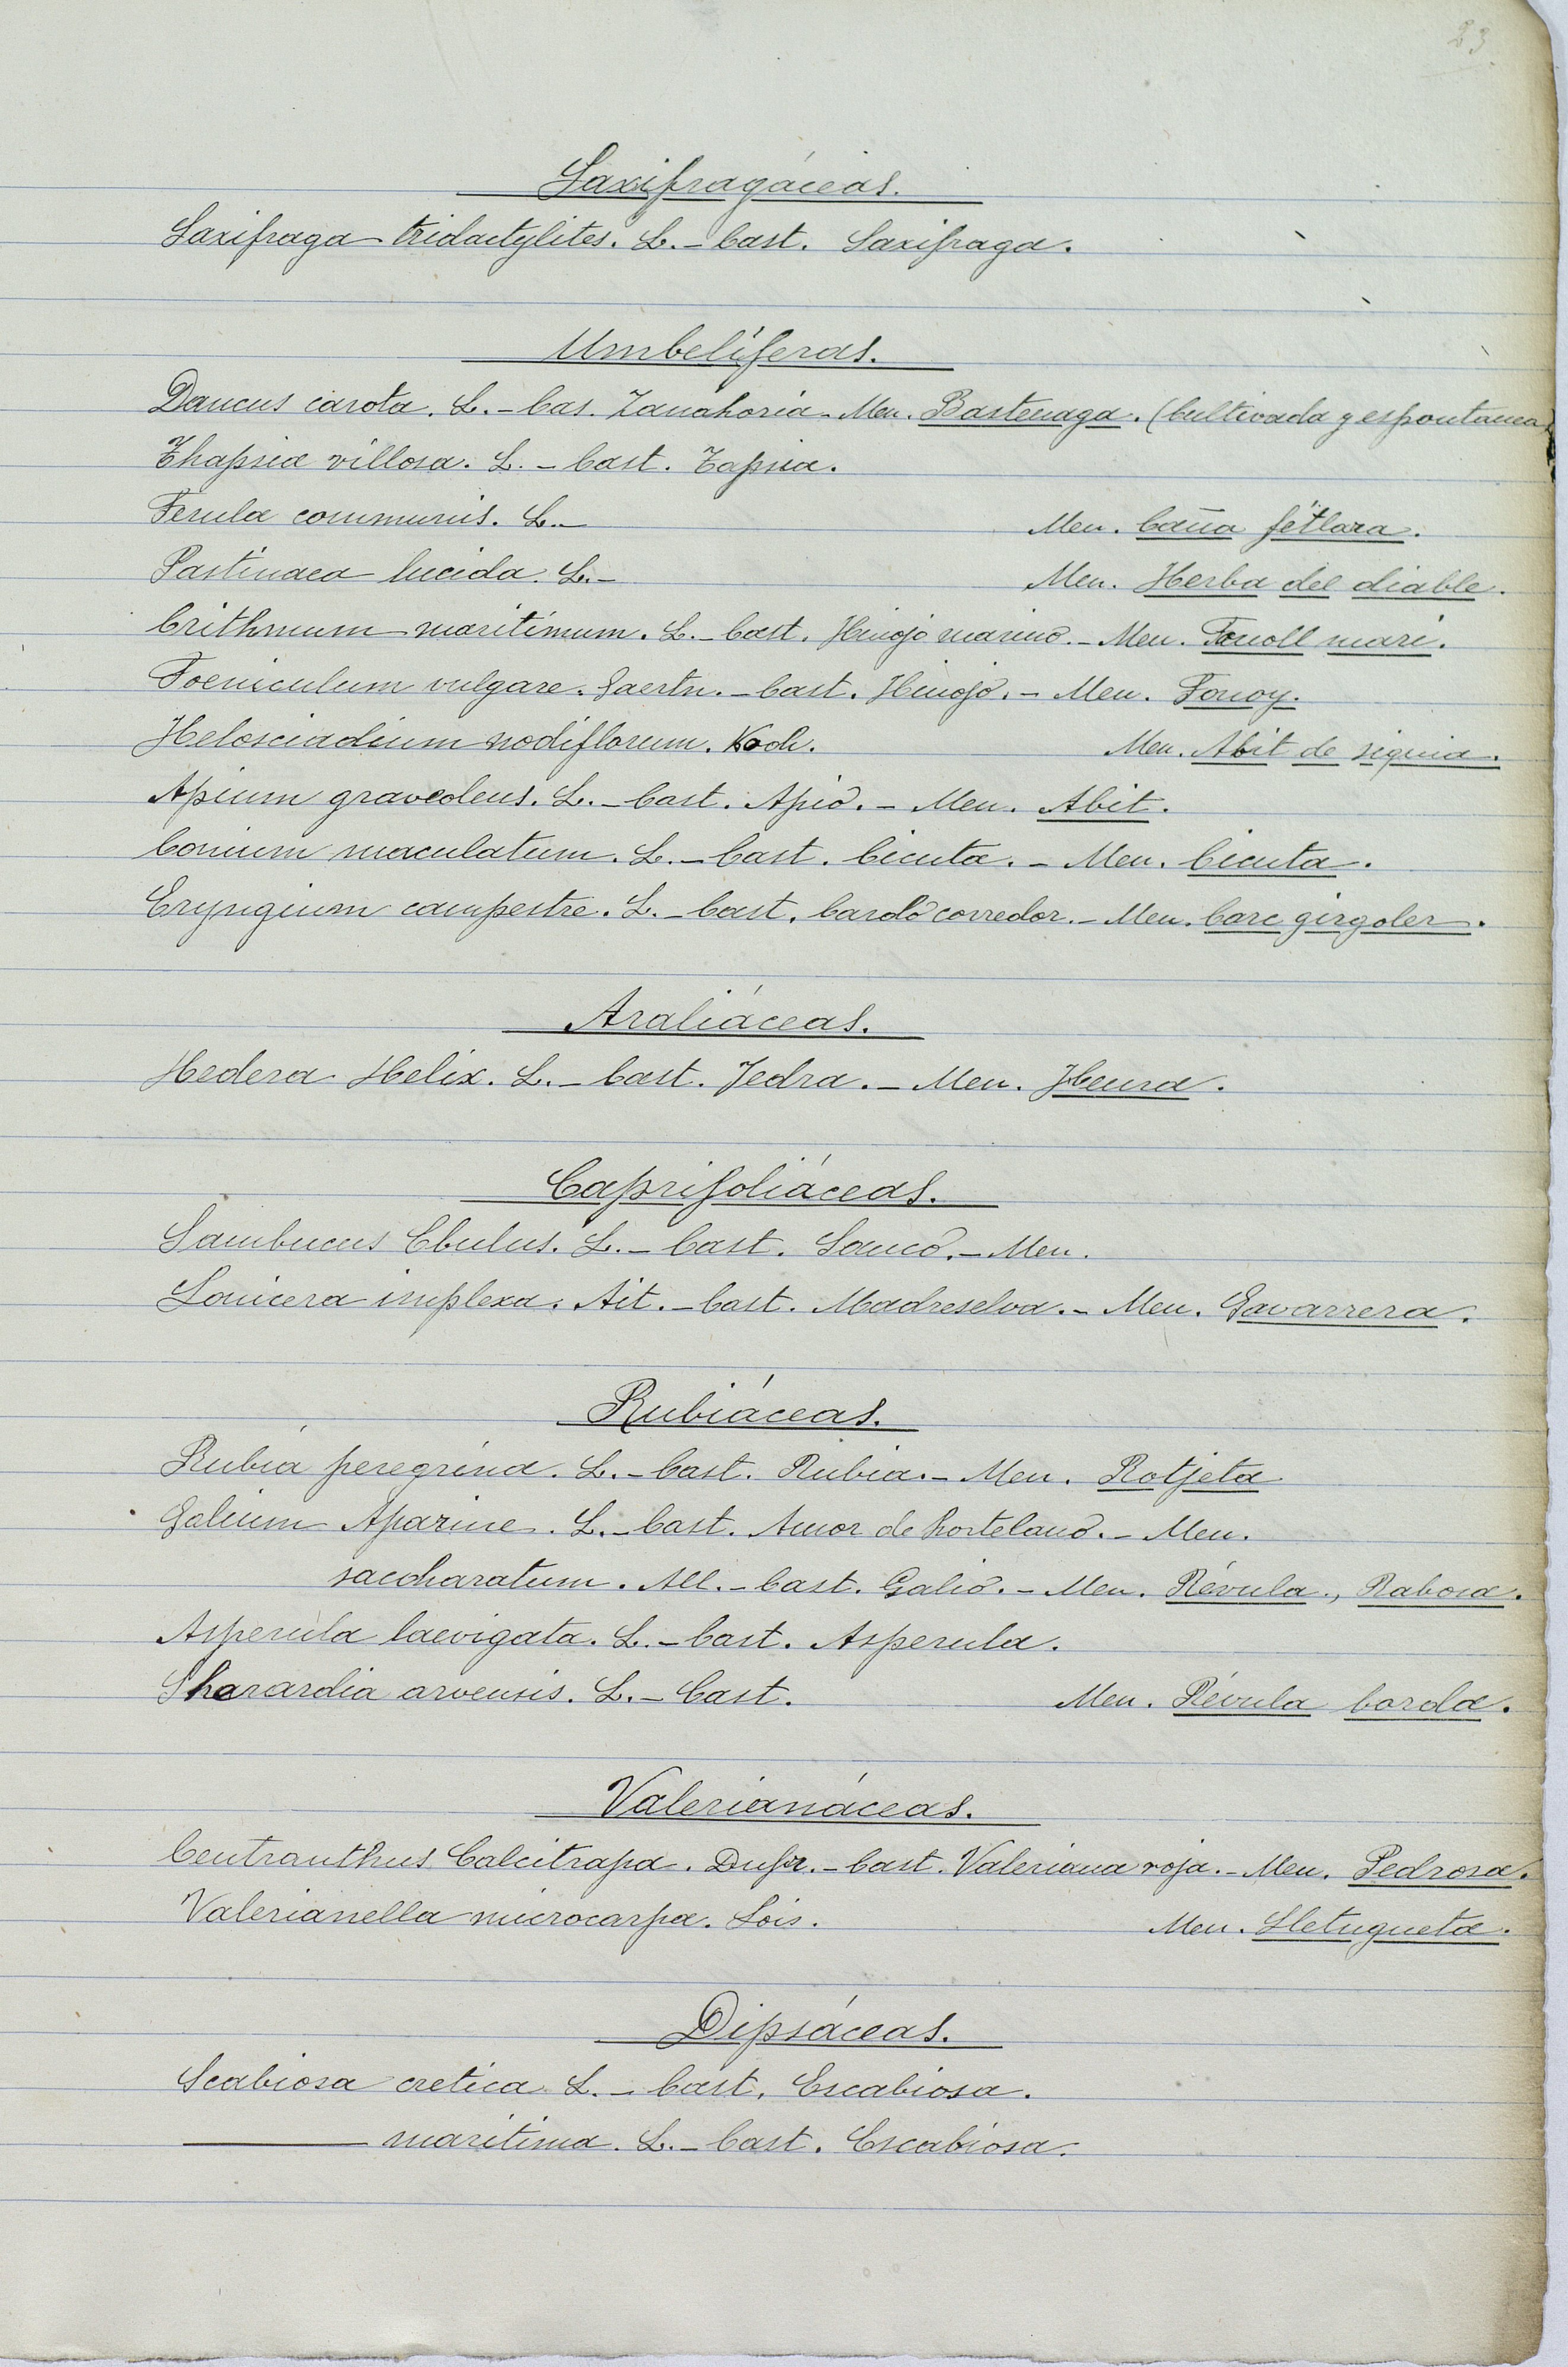 23.
Saxifragáceas.
Saxifraga tridactylites. L. - Cast. Saxifraga.
Umbelíferas.
Daucus carota. L. - Cas. Zanahoria - Men. Bastenaga. (Cultivada y espontanea)
Thapsia villosa. L. - Cast. Tapsia.
Ferula communis. L. - Men. Caña fétlara.
Pastinaca lucida. L. - Men. Herba del diable.
Crithmum maritimum. L. - Cast. Hinojo marino. - Men. Fonoll mari.
Foeniculum vulgare. Gaertn. - Cast. Hinojo. - Men. Fonoy.
Helosciadium nodiflorum. Koch. Men. Abit de siquia.
Apium graveolens. L. - Cast. Apio. - Men. Abit.
Conium maculatum. L. - Cast. Cicuta. - Men. Cicuta.
Eryngium campestre. L. - Cast. Cardo corredor. - Men. Carc girgoler.
Araliáceas.
Hedera Helix. L. - Cast. Yedra. - Men. Heura.
Caprifoliáceas.
Sambucus Ebulus. L. - Cast. Sauco. - Men.
Lonicera implexa. Ait. - Cast. Madreselva. - Men. Gavarrera.
Rubiáceas.
Rubia peregrina. L. - Cast. Rubia. - Men. Rotjeta
Galium Aparine. L. - Cast. Amor de hortelano. - Men.
saccharatum. All. - Cast. Galio. - Men. Révula, Rabosa.
Asperula laevigata. L. - Cast. Asperula.
Sherardia arvensis. L. - Cast. Men. Révula borda.
Valerianáceas.
Centranthus Calcitrapa. Dufr. - Cast. Valeriana roja. - Men. Pedrosa.
Valerianella microcarpa. Lois. Men. Lletugueta.
Dipsáceas.
Scabiosa cretica L. - Cast. Escabiosa.
——— maritima. L. - Cast. Escabiosa.